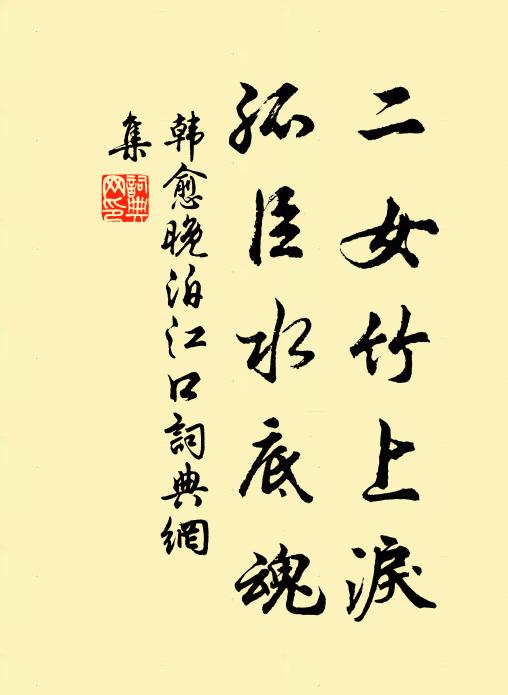 二女竹上淚
孤臣水底魂
韩愈晚泊江口詞典網
集
詞典網印